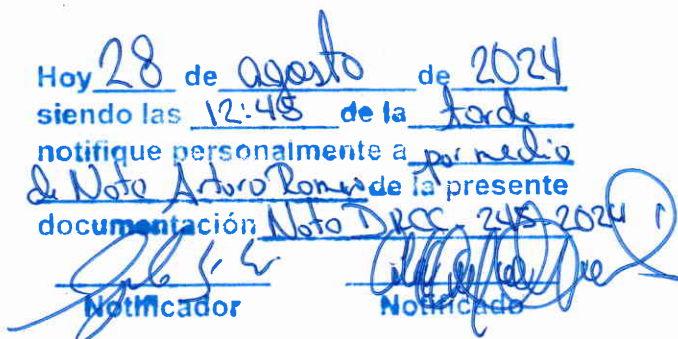 Hoy 28 de agosto de 2024
siendo las 12:45 de la tarde
notifique personalmente a por medio
de Nota Arturo Romero de la presente
documentación Nota DRCC 245-2024
Notificador Notificado